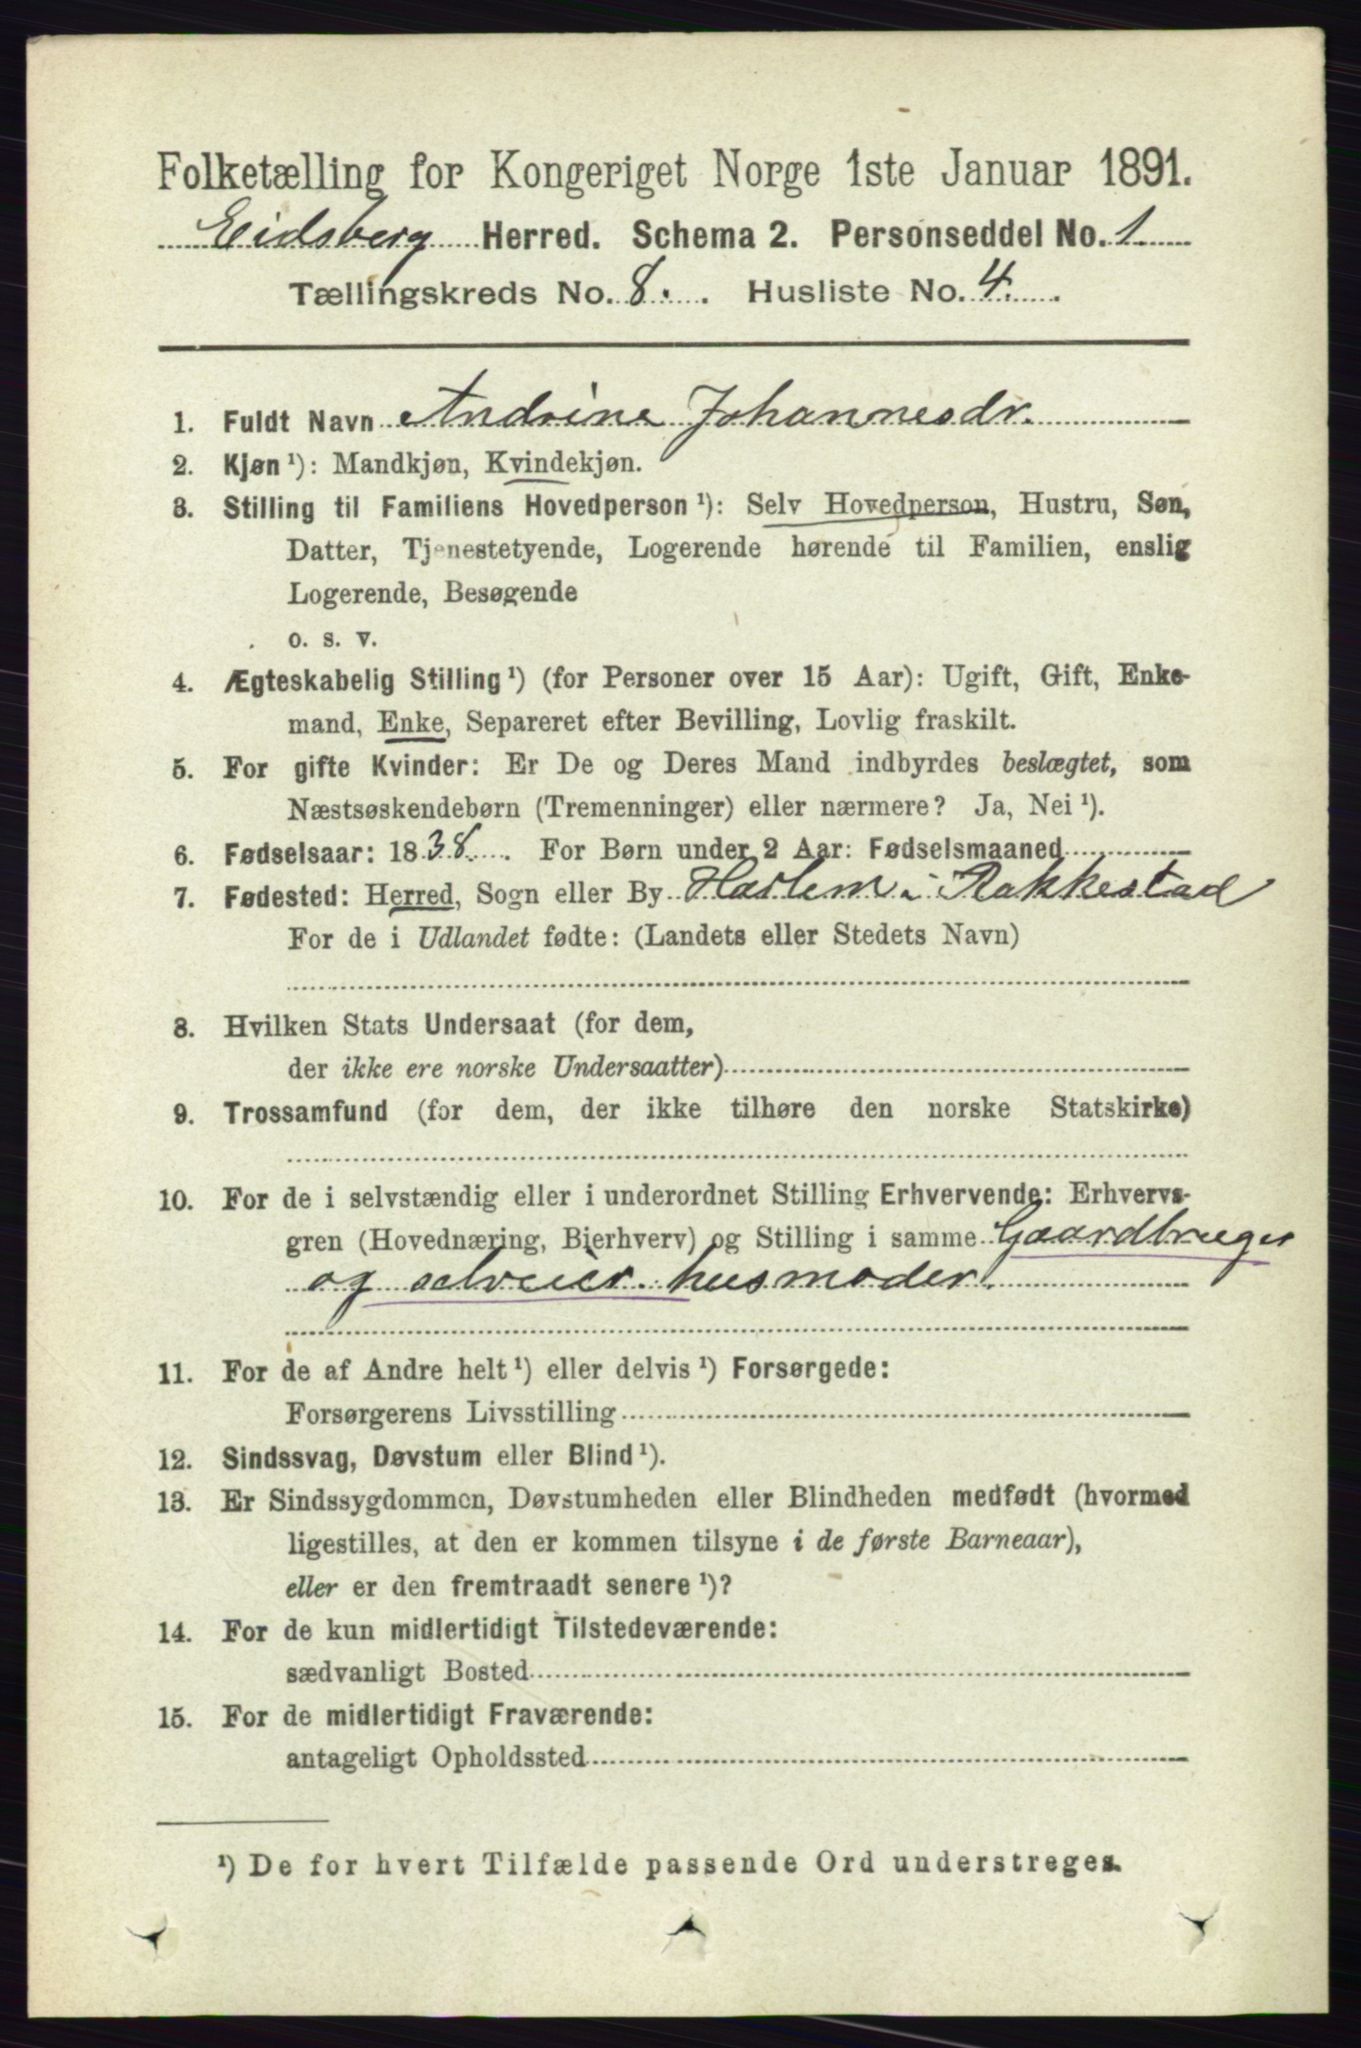 Folketælling for Kongeriget Norge 1ste Januar 1891.
Eidsberg Herred. Schema 2. Personseddel No. 1.
Tællingskreds No. 8. Husliste No. 4.
1. Fuldt Navn Andrine Johannesdr.
2. Kjøn ¹): Mandkjøn, Kvindekjøn.
3. Stilling til Familiens Hovedperson ¹): Selv Hovedperson, Hustru, Søn,
Datter, Tjenestetyende, Logerende hørende til Familien, enslig
Logerende, Besøgende
o. s. v.
4. Ægteskabelig Stilling ¹) (for Personer over 15 Aar): Ugift, Gift, Enke-
mand, Enke, Separeret efter Bevilling, Lovlig fraskilt.
5. For gifte Kvinder: Er De og Deres Mand indbyrdes beslægtet, som
Næstsøskendebørn (Tremenninger) eller nærmere? Ja, Nei ¹).
6. Fødselsaar: 1838. For Børn under 2 Aar: Fødselsmaaned
7. Fødested: Herred, Sogn eller By Haslem i Rakkestad
For de i Udlandet fødte: (Landets eller Stedets Navn)
8. Hvilken Stats Undersaat (for dem,
der ikke ere norske Undersaatter)
9. Trossamfund (for dem, der ikke tilhøre den norske Statskirke)
10. For de i selvstændig eller i underordnet Stilling Erhvervende: Erhvervs-
gren (Hovednæring, Bierhverv) og Stilling i samme Gaardbruger
og selveier. husmoder.
11. For de af Andre helt ¹) eller delvis ¹) Forsørgede:
Forsørgerens Livsstilling
12. Sindssvag, Døvstum eller Blind ¹).
13. Er Sindssygdommen, Døvstumheden eller Blindheden medfødt (hvormed
ligestilles, at den er kommen tilsyne i de første Barneaar),
eller er den fremtraadt senere ¹)?
14. For de kun midlertidigt Tilstedeværende:
sædvanligt Bosted
15. For de midlertidigt Fraværende:
antageligt Opholdssted
¹) De for hvert Tilfælde passende Ord understreges.